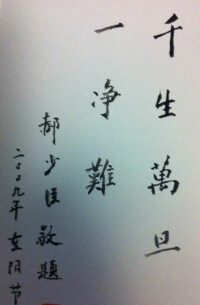 千生萬旦
一净難
郝少 敬題
二〇〇九年重阳节